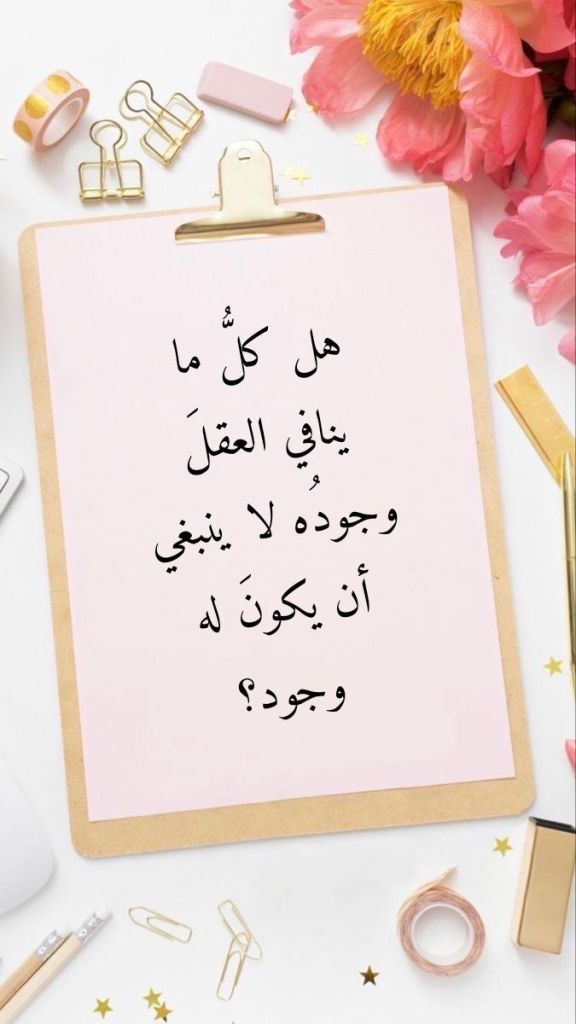 هل كلُّ ما
ينافي العقلَ
وجودُه لا ينبغي
أن يكونَ له
وجود؟